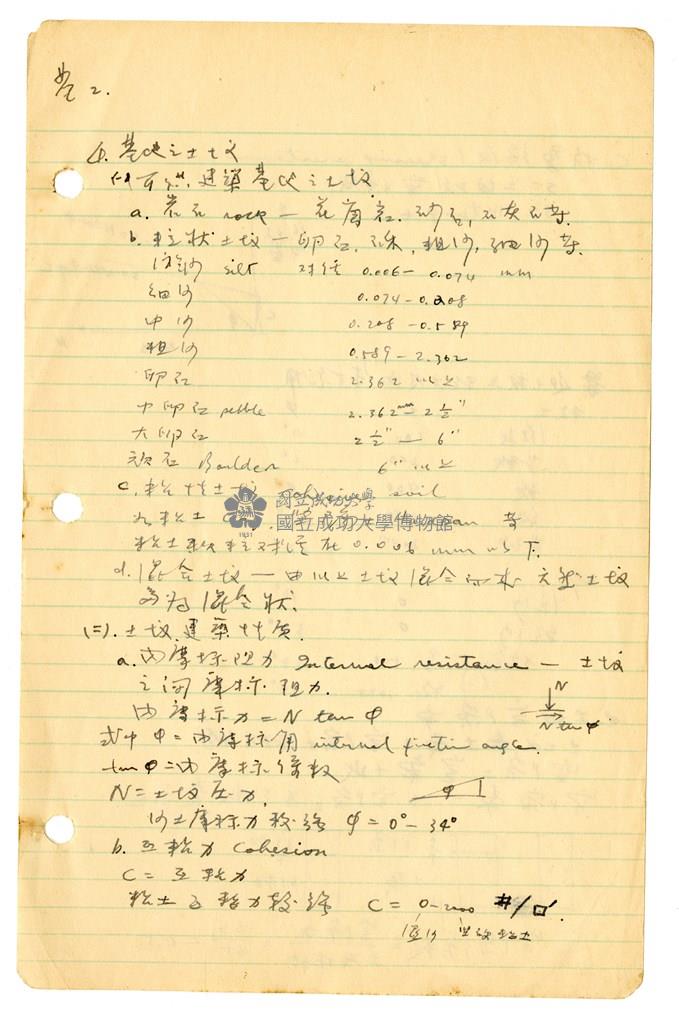 基 2.
1. 基地之土坡
(一) 可然建築基地之土坡
a. 岩石 rock — 花崗岩. 砂石, 石灰石等.
b. 粒狀土坡 — 卵石, 礫, 粗沙, 細沙等.
沙 silt 对徑 0.006 — 0.074 mm
細沙 0.074 - 0.208
中沙 0.208 - 0.589
粗沙 0.589 - 2.362
卵石 2.362 以上
中卵石 pebble 2.362mm — 2½"
大卵石 2½" — 6"
石 Boulder 6" 以上
c. 粘性土坡 soil
粘土 等
粘土 粒对徑在 0.006 mm 以下.
d. 混合土坡 — 由以上土坡混合而成 天然土坡
多为混合狀.
(二). 土坡建築性质.
a. 內摩擦阻力 Internal resistance — 土坡
之间摩擦阻力.
N
內摩擦力 = N tan φ
N tan φ
式中 φ = 內摩擦角 internal friction angle.
tan φ = 內摩擦係数
N = 土坡压力,
φ
沙土摩擦力較強 φ = 0° - 34°
b. 互粘力 Cohesion
C = 互粘力
粘土互粘力較強 C = 0-2000 #/□'.
國立成功大學
國立成功大學博物館
1931